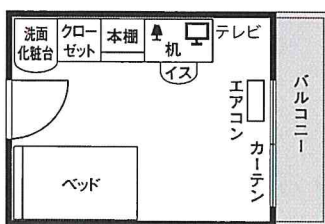 洗面
化粧台
クロー
ゼット
本棚
机
テレビ
イス
エアコン
カーテン
バルコニー
ベッド